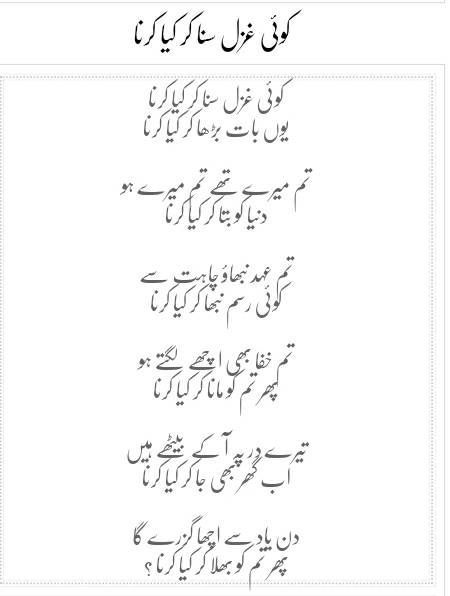 کوئی غزل سنا کر کیا کرنا
کوئی غزل سنا کر کیا کرنا
یوں بات بڑھا کر کیا کرنا
تم میرے تھے تم میرے ہو
دنیا کو بتا کر کیا کرنا
تم عہد نبھاؤ چاہت سے
کوئی رسم نبھا کر کیا کرنا
تم خفا بھی اچھے لگتے ہو
پھر تم کو مانا کر کیا کرنا
تیرے در پہ آ کے بیٹھے ہیں
اب گھر بھی جا کر کیا کرنا
دن یاد سے اچھا گزرے گا
پھر تم کو بھلا کر کیا کرنا ؟